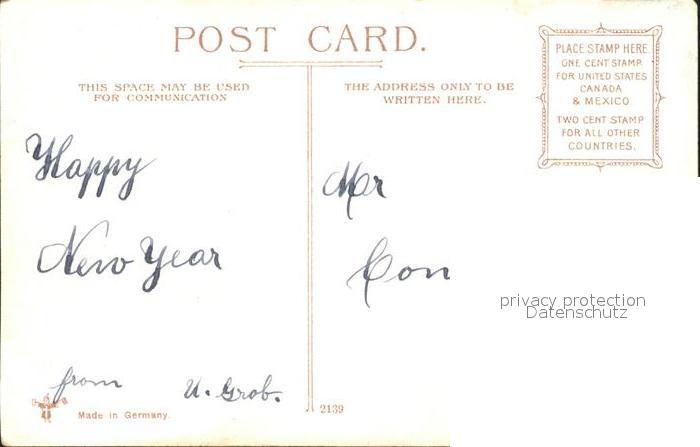 POST CARD.
THIS SPACE MAY BE USED
FOR COMMUNICATION
THE ADDRESS ONLY TO BE
WRITTEN HERE.
PLACE STAMP HERE.
ONE CENT STAMP
FOR UNITED STATES
CANADA
& MEXICO.
TWO CENT STAMP
FOR ALL OTHER
COUNTRIES.
Happy
New Year
from U. Grob.
Mr
Con
privacy protection
Datenschutz
Made in Germany.
2139